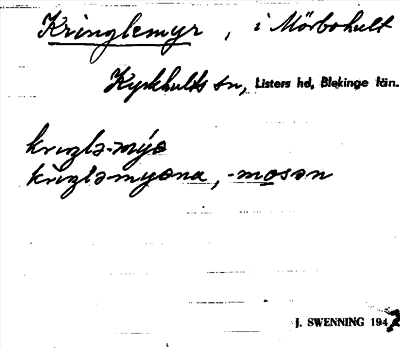 Kringlemyr, i Mörbohult
Kyrkhults sn, Listers hd, Blekinge län.
kriŋlə-mýɐ
kriŋləmyɐna, -mosən
J. SWENNING 194